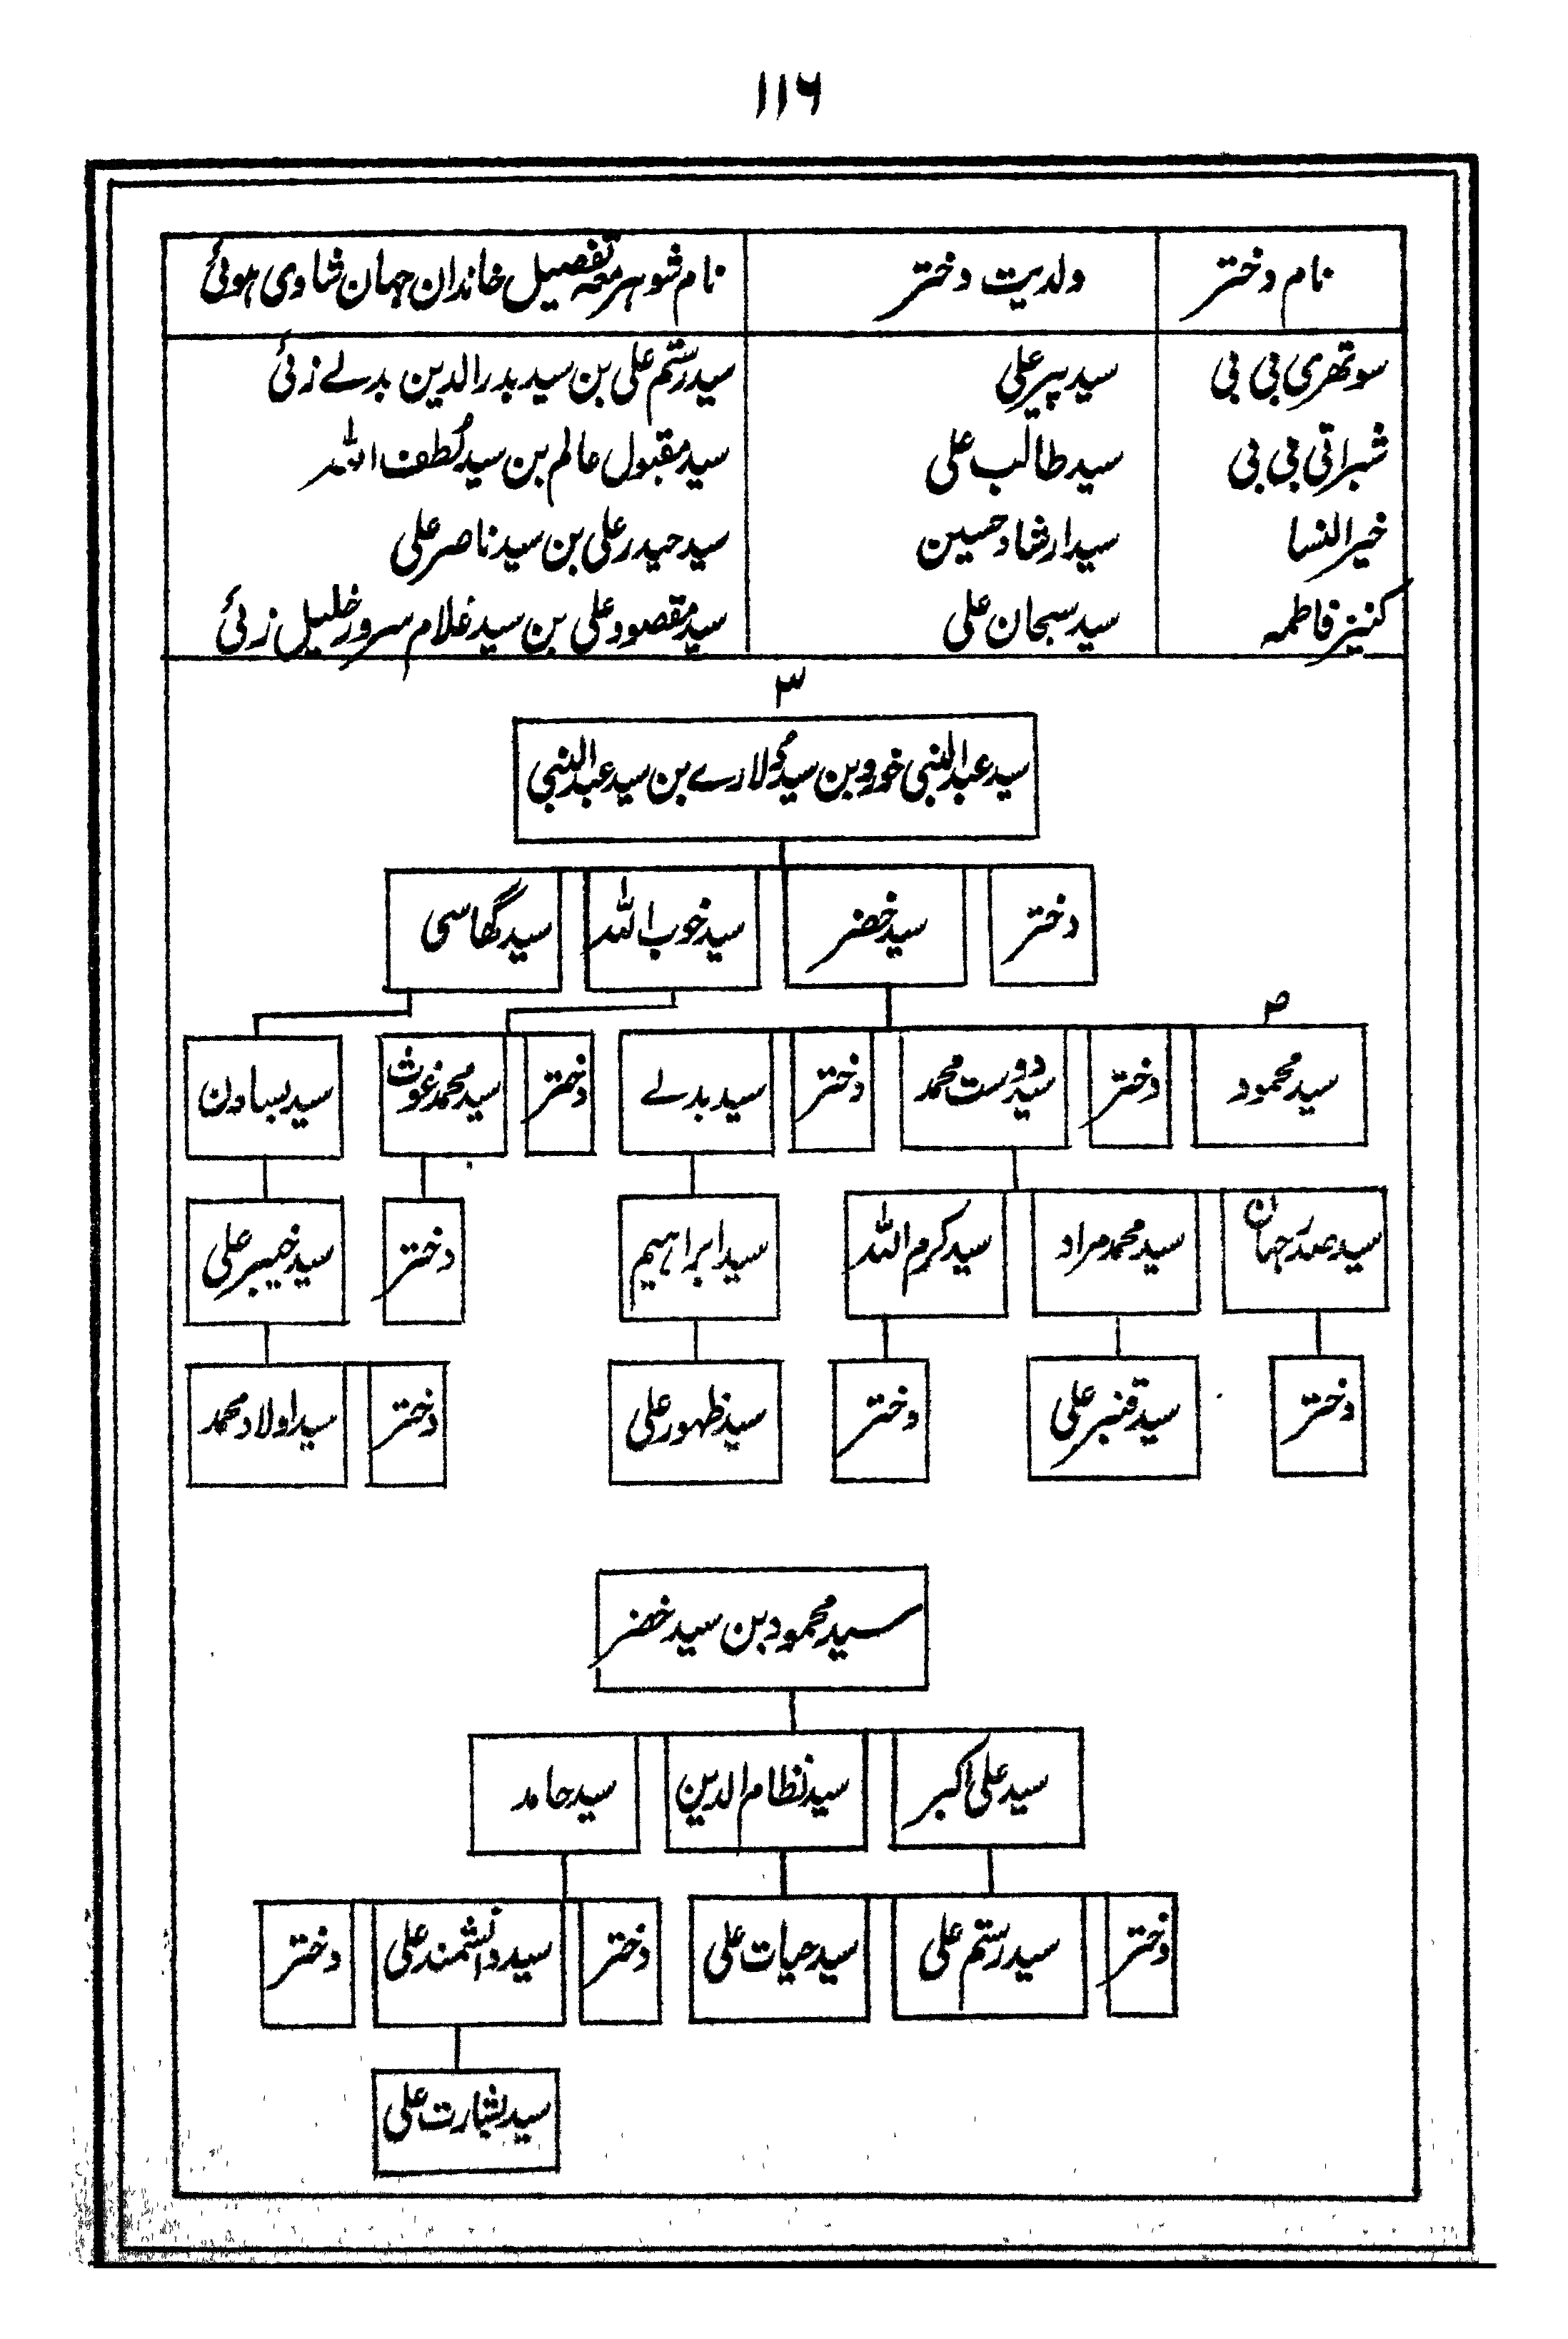 ۱۱۶
نام دختر ولدیت دختر نام شوہر معہ تفصیل خاندان جہان شادی ہوئی
سوتھری بی بی سید پیر علی سید رستم علی بن سید بدرالدین بدلے زئی
شبراتی بی بی سید طالب علی سید مقبول عالم بن سید لطف اللہ
خیرالنسا سید ارشاد حسین سید حیدر علی بن سید ناصر علی
کنیز فاطمہ سید سبحان علی سید مقصود علی بن سید غلام سرور خلیل زئی
۳
سید عبدالنبی خورد بن سید مولارے بن سید عبدالنبی
دختر سید خضر سید خوب اللہ سید گھاسی
سید محمود دختر سید دوست محمد دختر سید بدلے دختر سید محمد غوث سید بساون
سید صدر جہان سید محمد مراد سید کرم اللہ سید ابراہیم دختر سید خیبر علی
دختر سید قنبر علی دختر سید ظہور علی دختر سید اولاد محمد
سید محمود بن سید خضر
سید علی اکبر سید نظام الدین سید حامد
دختر سید رستم علی سید حیات علی دختر سید دانشمند علی دختر
سید بشارت علی